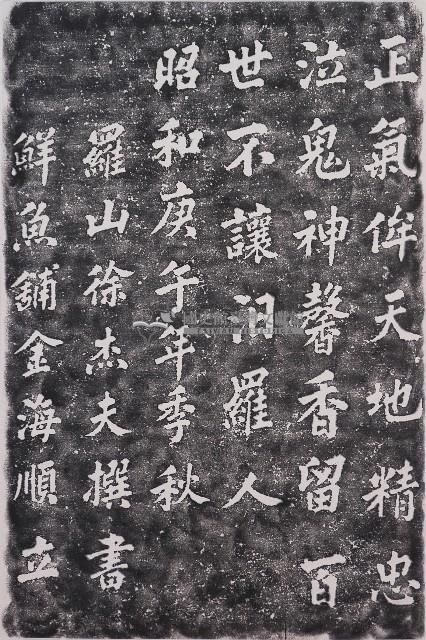 正氣侔天地精忠
泣鬼神馨香留百
世不讓汨羅人
昭和庚午年季秋
羅山徐杰夫撰書
鮮魚舖金海順立